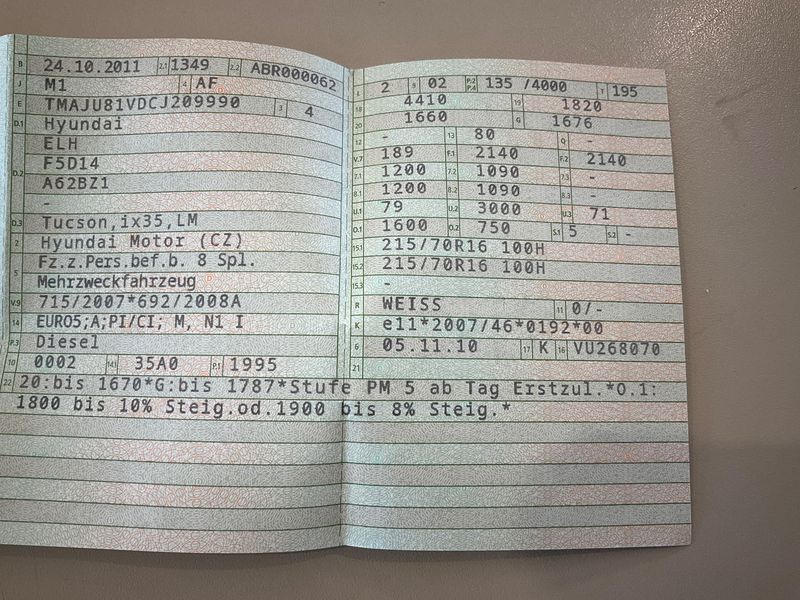 B 24.10.2011 2.1 1349 2.2 ABR000062
J M1 4 AF
E TMAJU81VDCJ209990 3 4
D.1 Hyundai
ELH
D.2 F5D14
A62BZ1
-
D.3 Tucson,ix35,LM
2 Hyundai Motor (CZ)
5 Fz.z.Pers.bef.b. 8 Spl.
Mehrzweckfahrzeug
V.9 715/2007*692/2008A
14 EURO5;A;PI/CI; M, N1 I
P.3 Diesel
10 0002 14.1 35A0 P.1 1995
L 2 9 02 P.2 P.4 135 /4000 T 195
18 4410 19 1820
20 1660 G 1676
12 - 13 80 Q -
V.7 189 F.1 2140 F.2 2140
7.1 1200 7.2 1090 7.3 -
8.1 1200 8.2 1090 8.3 -
U.1 79 U.2 3000 U.3 71
O.1 1600 O.2 750 S.1 5 S.2 -
15.1 215/70R16 100H
15.2 215/70R16 100H
15.3 -
R WEISS 11 0/-
K e11*2007/46*0192*00
6 05.11.10 17 K 16 VU268070
21
22 20:bis 1670*G:bis 1787*Stufe PM 5 ab Tag Erstzul.*O.1:
1800 bis 10% Steig.od.1900 bis 8% Steig.*